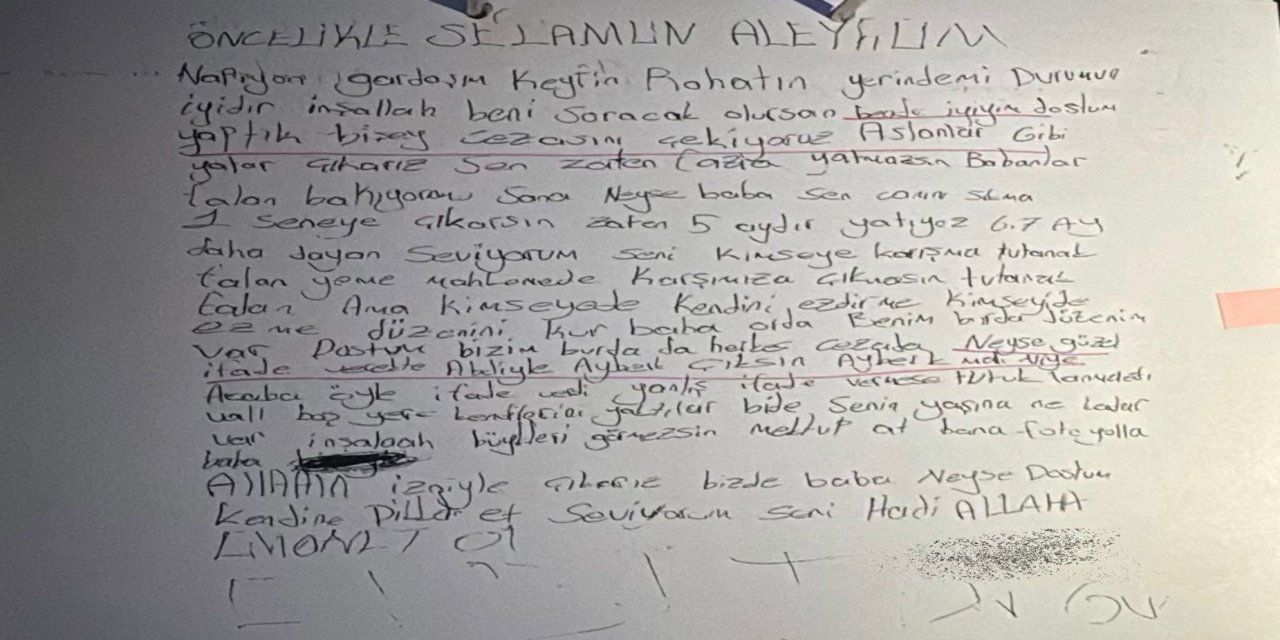 ÖNCELİKLE SELAMUN ALEYKUM
Napıyon gardaşım Keyfin Rahatın yerindemi Durumun
iyidir inşallah beni Soracak olursan bende iyiyim dostum
yaptık bizey cezasını çekiyoruz Aslanlar Gibi
yatar çıkarız Sen zaten fazla yatmazsın Babanlar
falan bakıyorum Sana Neyse baba sen canın sıkma
1 seneye çıkarsın zaten 5 aydır yatıyoz 6.7 Ay
daha dayan Seviyorum seni Kimseye karışma tutanak
falan yeme mahkemede Karşımıza çıkmasın tutanak
falan Ama Kimseyede Kendini ezdirme Kimseyide
ezme düzenini Kur baba orda Benim burda düzenim
var Dostum bizim burda da herkes cezada Neyse güzel
ifade verdi Ayberk Çıksın Ayberk niye
Acaba öyle ifade verdi yanlış ifade vermese tutuk
vall boş yere yattılar bide Senin yaşına ne kadar
var inşalaah büyükleri görmezsin mektup at bana foto yolla
baba
ALLAHIN izniyle çıkarız bizde baba Neyse Dostum
Kendine Dikkat et Seviyorum seni Hadi ALLAHA
EMONET Ol